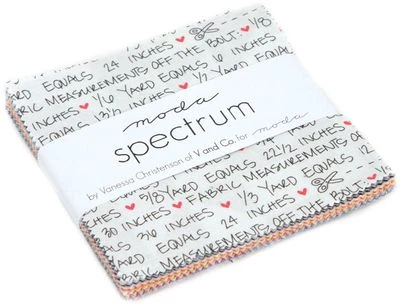 YARD EQUALS 24 INCHES 1/8
FABRIC MEASUREMENTS OFF THE BOLT:
INCHES 1/6 YARD EQUALS 6 INCHES
EQUALS 1/2 YARD EQUALS
moda
spectrum
by Vanessa Christenson of V and Co. for moda
INCHES 5/8 YARD EQUALS 22 1/2 INCHES
30 INCHES FABRIC MEASUREMENTS OF
EQUALS 24 INCHES 1/3 YARD EQUALS
MEASUREMENTS OFF THE BOLT: